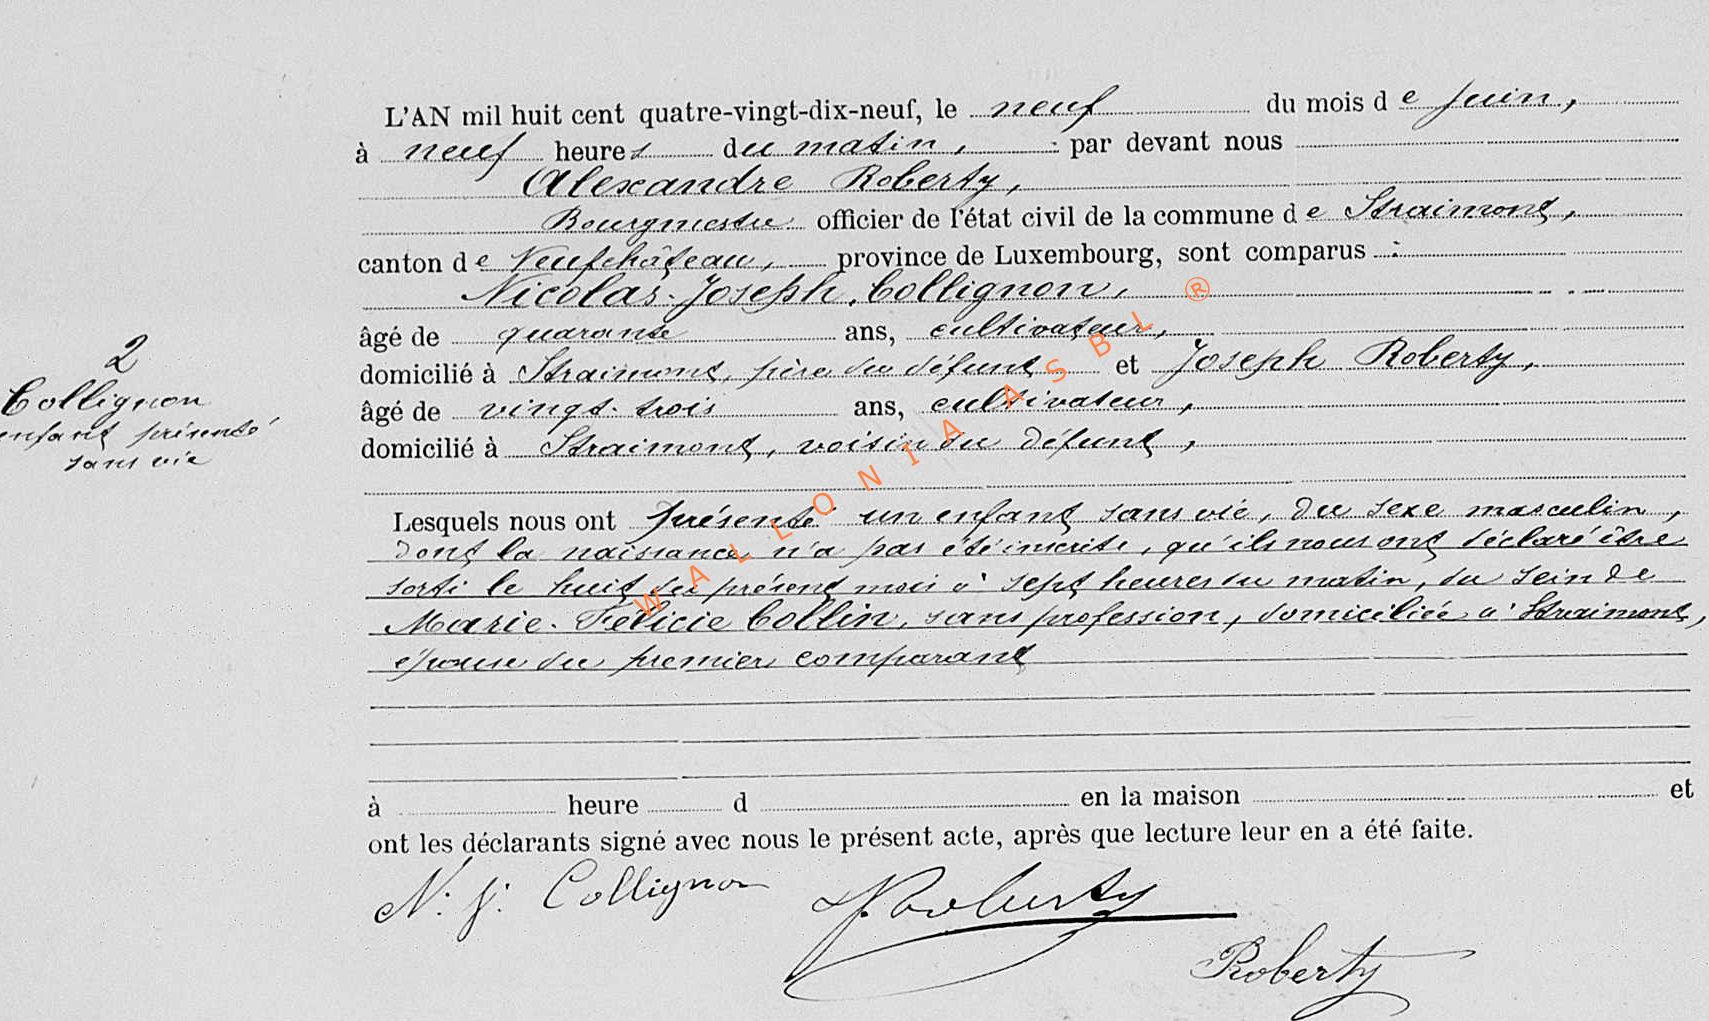 L'AN mil huit cent quatre-vingt-dix-neuf, le neuf du mois de juin,
à neuf heures du matin, par devant nous
Alexandre Roberty,
Bourgmestre officier de l'état civil de la commune de Straimont,
canton de Neufchâteau, province de Luxembourg, sont comparus :
Nicolas-Joseph Collignon,
âgé de quarante ans, cultivateur,
domicilié à Straimont, père du défunt et Joseph Roberty,
âgé de vingt-trois ans, cultivateur,
domicilié à Straimont, voisin du défunt,
2
Collignon
enfant présenté
sans vie
Lesquels nous ont présenté un enfant sans vie, du sexe masculin,
dont la naissance n'a pas été inscrite, qu'ils nous ont déclaré être
sorti le huit du présent mois à sept heures du matin, du sein de
Marie-Félicie Collin, sans profession, domiciliée à Straimont,
épouse du premier comparant
à heure d en la maison et
ont les déclarants signé avec nous le présent acte, après que lecture leur en a été faite.
N. J. Collignon J. Roberty
Roberty
WALLONIA ASBL ®